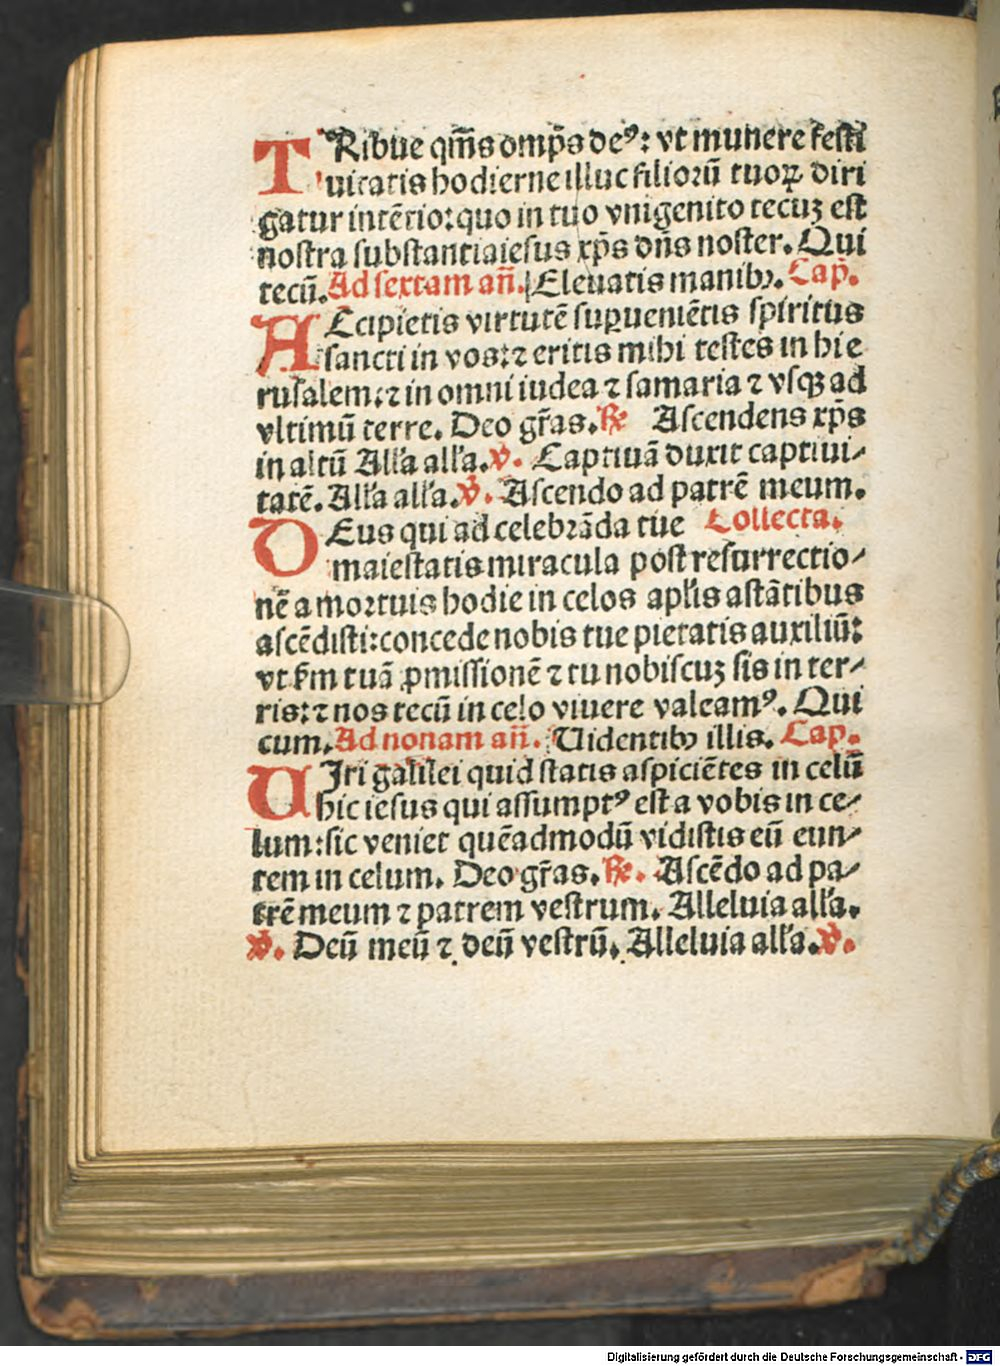 TRibue qm̄s omp̄s deꝰ: vt munere festi
uitatis hodierne illuc filioꝛū tuoꝝ diri
gatur intētio: quo in tuo vnigenito tecuꝫ est
nostra substantia iesus xp̄s dn̄s noster. Qui
tecū. Ad sextam añ. Eleuatis manibꝫ. Cap̄.
ACcipietis virtutē suꝑueniētis spiritus
sancti in vos: ⁊ eritis mihi testes in hie
rusalem: ⁊ in omni iudea ⁊ samaria ⁊ vsqꝫ ad
vltimū terre. Deo gr̄as. ℟ Ascendens xp̄s
in altū All'a all'a. ℣. Captiuā duxit captiui⸗
tatē. All'a all'a. ℣. Ascendo ad patrē meum.
DEus qui ad celebrāda tue Collecta.
maiestatis miracula post resurrectio⸗
nē a moꝛtuis hodie in celos apl'is astātibus
ascēdisti: concede nobis tue pietatis auxiliū:
vt f̄m tuā ꝓmissionē ⁊ tu nobiscuꝫ sis in ter⸗
ris: ⁊ nos tecū in celo viuere valeamꝰ. Qui
cum. Ad nonam añ. Uidentibꝫ illis. Cap.
UIri galilei quid statis aspiciētes in celū
hic iesus qui assumptꝰ est a vobis in ce⸗
lum: sic veniet quēadmodū vidistis eū eun⸗
tem in celum. Deo gr̄as. ℟. Ascēdo ad pa⸗
trē meum ⁊ patrem vestrum. Alleluia all'a.
℣. Deū meū ⁊ deū vestrū. Alleluia all'a. ℣.
Digitalisierung gefördert durch die Deutsche Forschungsgemeinschaft - DFG